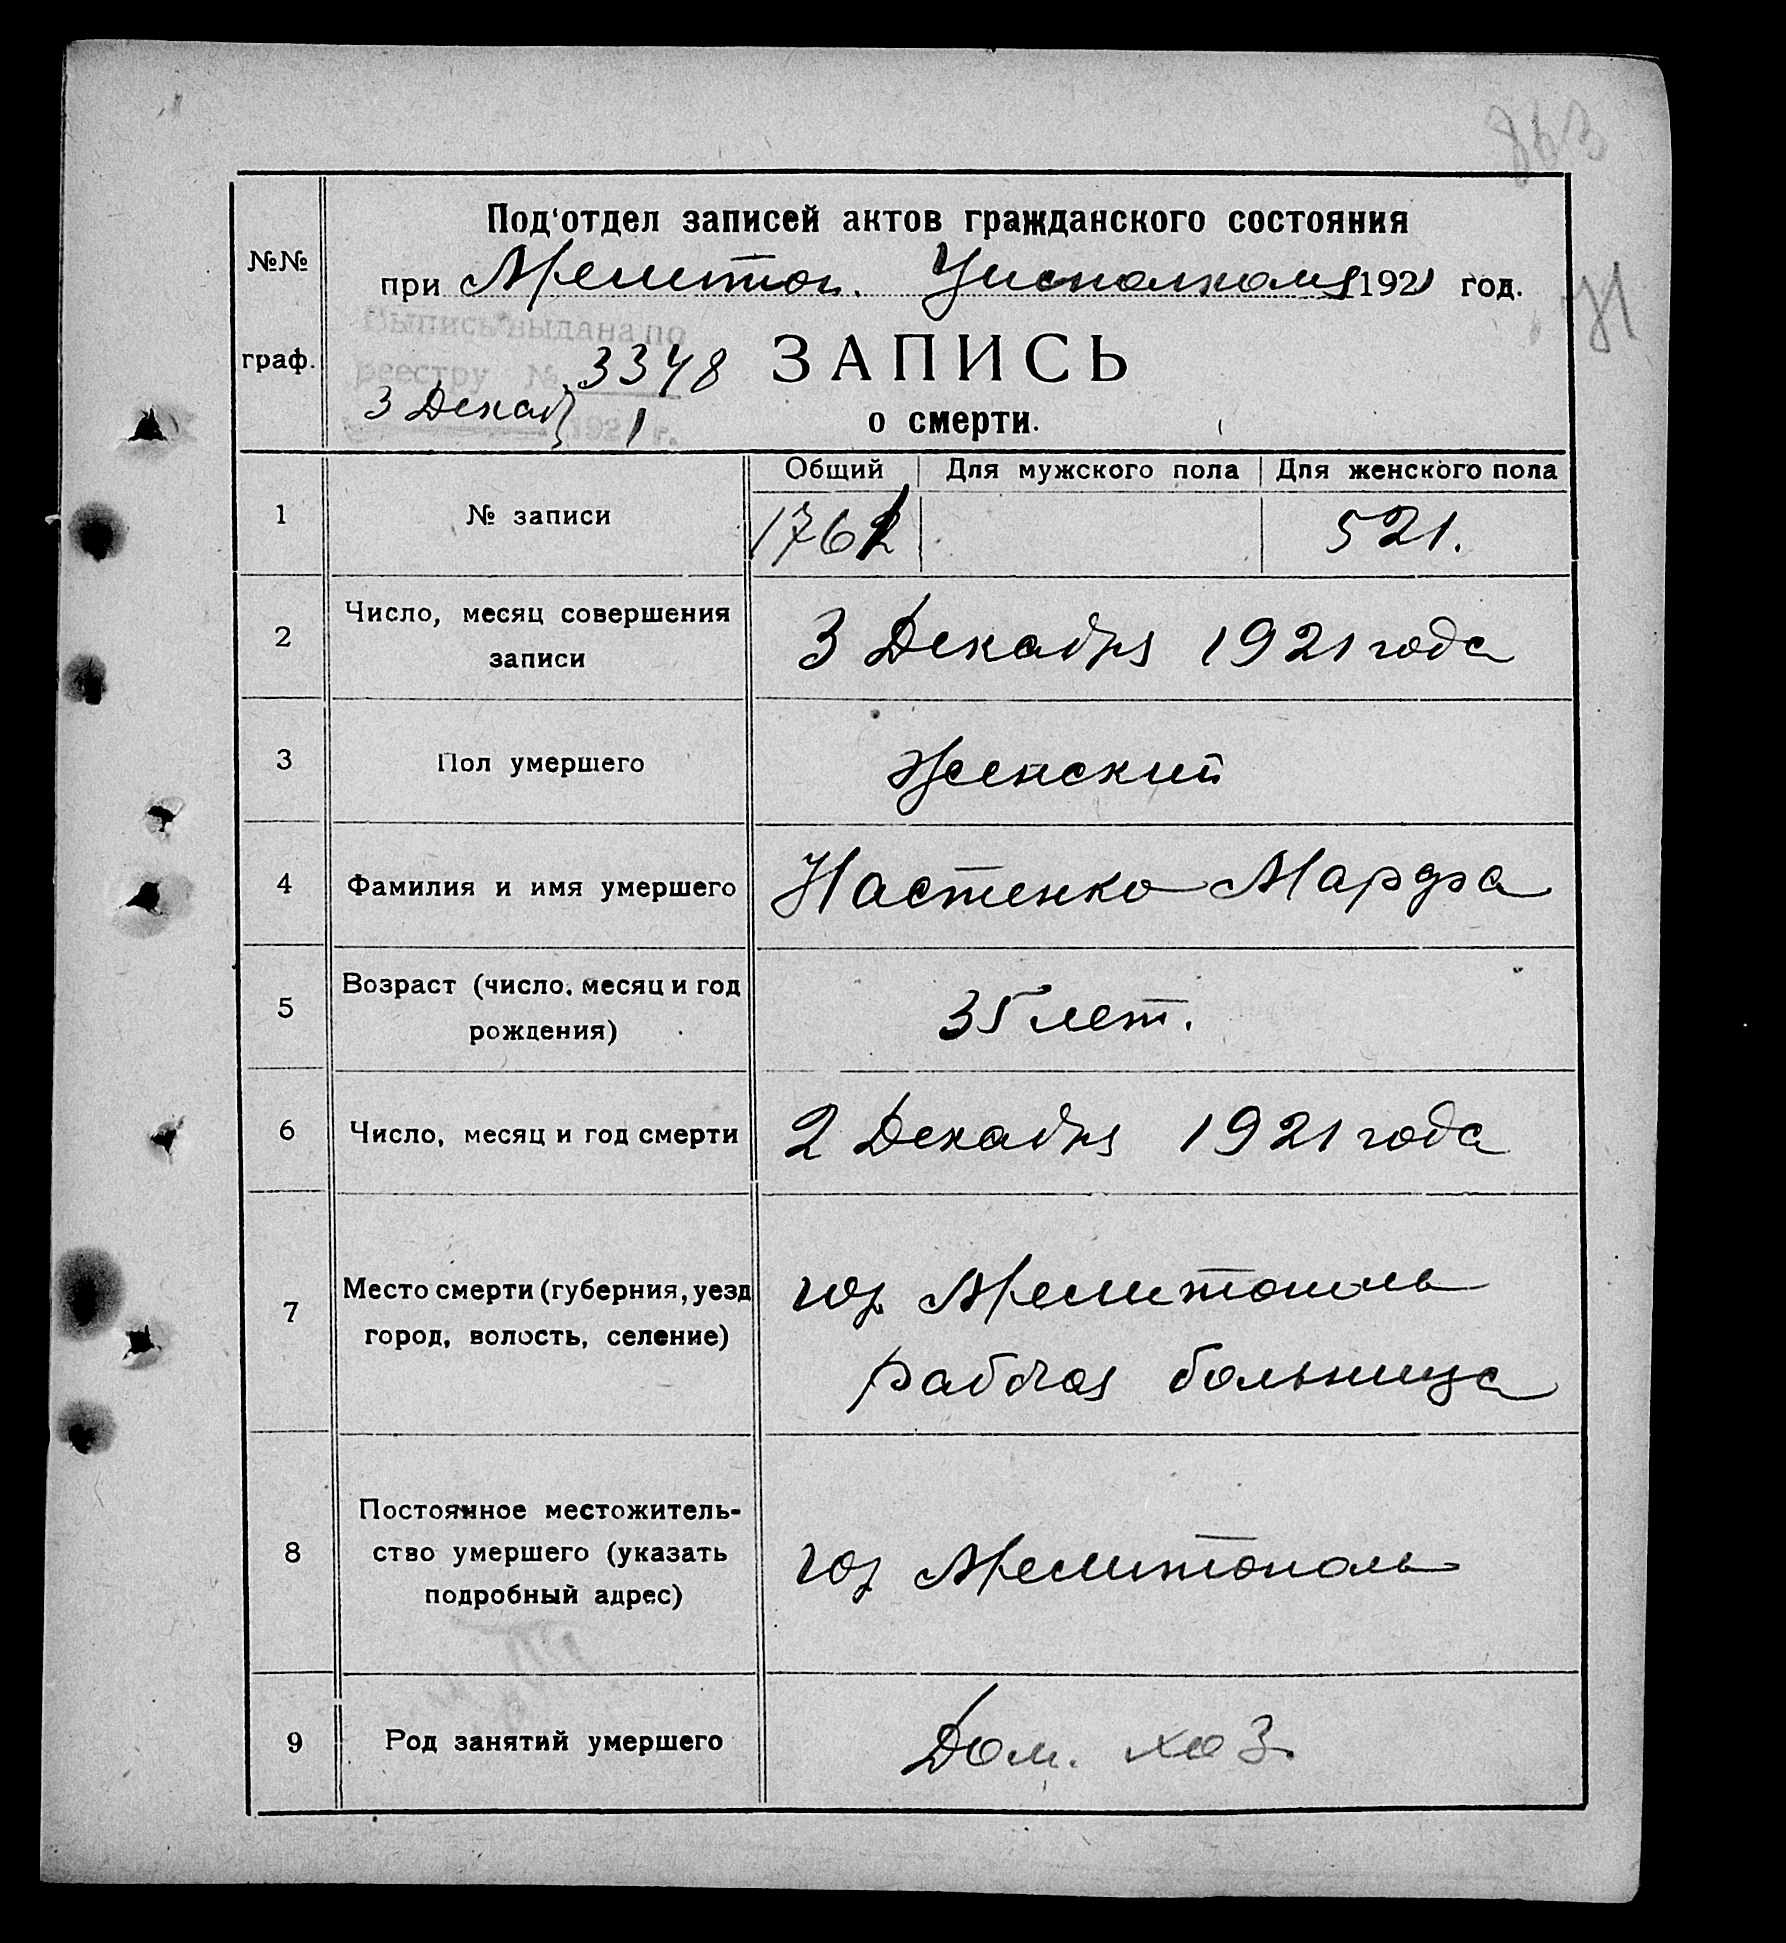 863
Под'отдел записей актов гражданского состояния
№№
при Мелитоп. Уисполкоме 1921 год.
71
Выпись выдана по
реестру № 3348
3 Декаб 1921 г.
граф.
ЗАПИСЬ
о смерти.
Общий Для мужского пола Для женского пола
1 № записи 1761 521.
2 Число, месяц совершения
записи
3 Декабря 1921 года
3 Пол умершего Женский
4 Фамилия и имя умершего Настенко Марфа
5 Возраст (число, месяц и год
рождения)
35 лет.
6 Число, месяц и год смерти 2 Декабря 1921 года
7 Место смерти (губерния, уезд
город, волость, селение)
гор. Мелитополь
рабочая больница
8 Постоянное местожитель-
ство умершего (указать
подробный адрес)
гор Мелитополь
9 Род занятий умершего Дом. хоз.